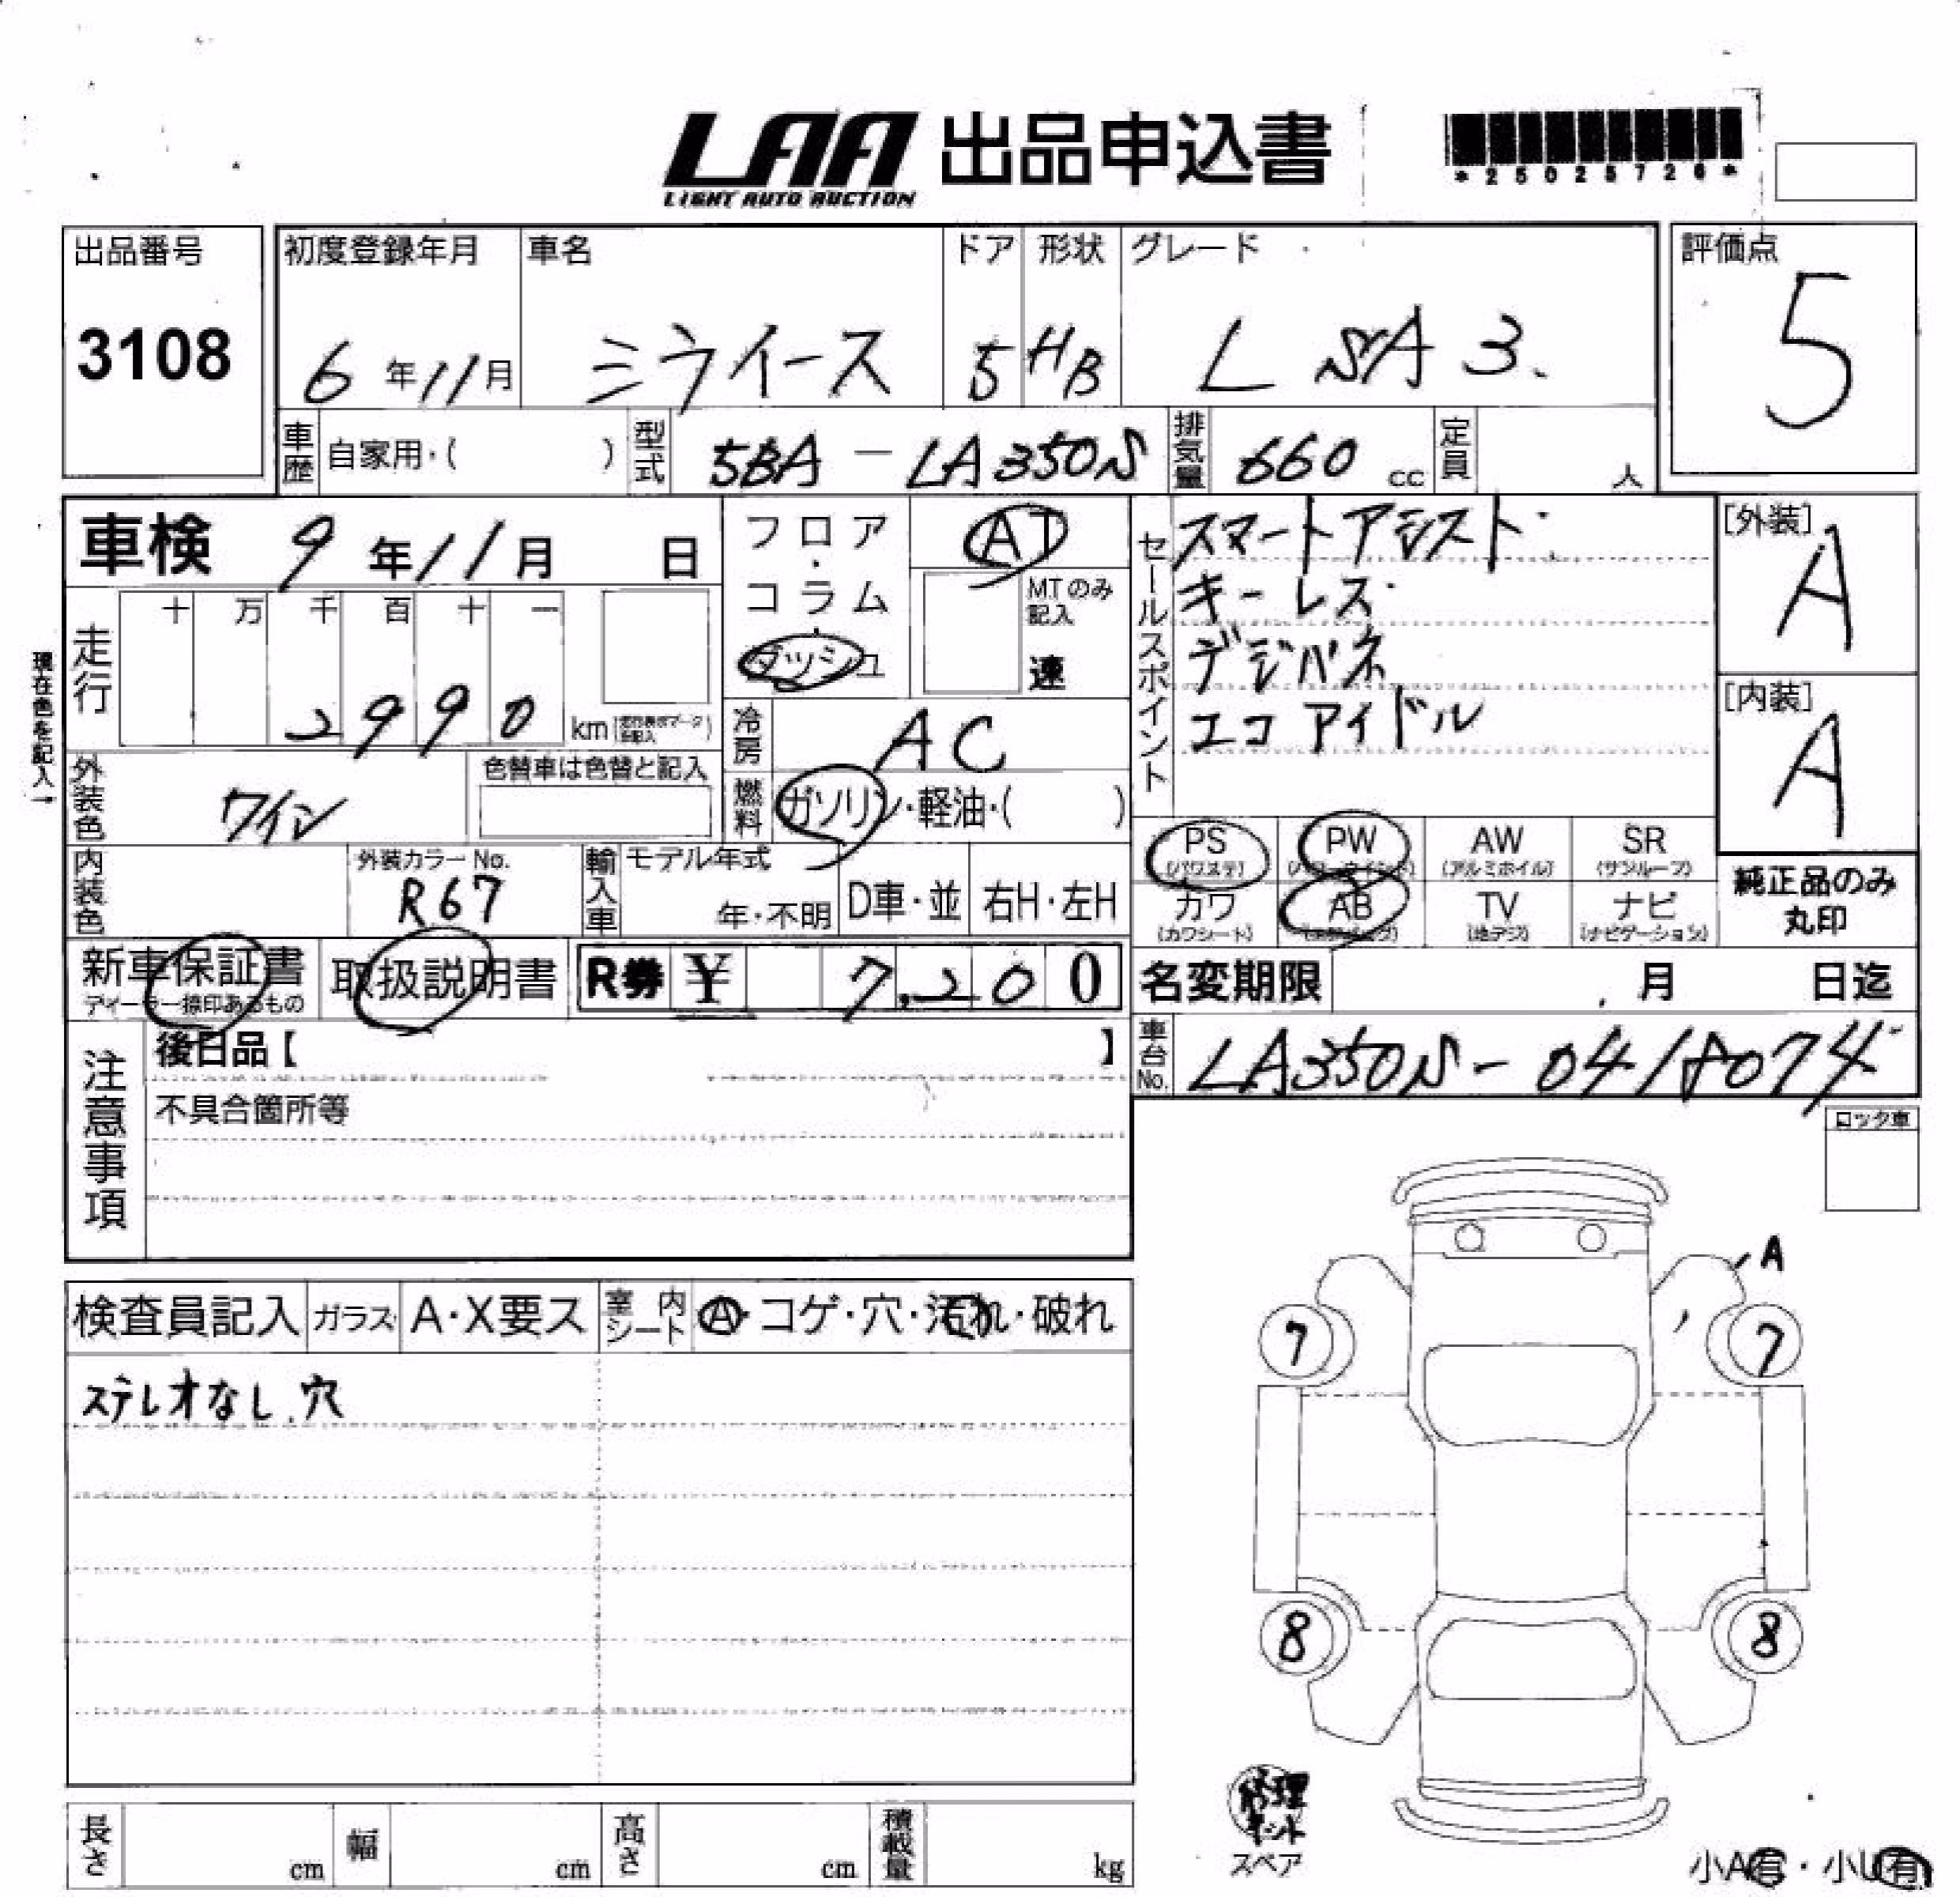 LAA 出品申込書
LIGHT AUTO AUCTION
*25025726*
出品番号 初度登録年月 車名 ドア 形状 グレード 評価点
3108 6年11月 ミライース 5 HB L SA3. 5
車歴 自家用・( ) 型式 5BA-LA350S 排気量 660 cc 定員 人
車検 9年11月 日
フロア・コラム・ダッシュ
AT
MTのみ記入
速
セールスポイント
スマートアシスト
キーレス
デジパネ
エコアイドル
[外装] A
[内装] A
現在色を記入→
走行 十 万 千 百 十 一
2990 km
冷房 AC
外装色 ワイン 色替車は色替と記入
燃料 ガソリン・軽油・( )
内装色 外装カラーNo. R67
輸入車 モデル年式 年・不明 D車・並 右H・左H
PS (パワステ) PW (パワーウインド) AW (アルミホイル) SR (サンルーフ)
カワ (カワシート) AB (エアバッグ) TV (地デジ) ナビ (ナビゲーション)
純正品のみ
丸印
新車保証書 取扱説明書 R券 ¥ 7,200
ディーラー捺印あるもの
名変期限 月 日迄
車台No. LA350S-0418074
注意事項
後日品【 】
不具合箇所等
ロック車
検査員記入 ガラス A・X要ス 室内シート A・コゲ・穴・汚れ・破れ
ステレオなし、穴
A
7 7
8 8
修理キット
スペア
小A有・小U有
長さ cm 幅 cm 高さ cm 積載量 kg